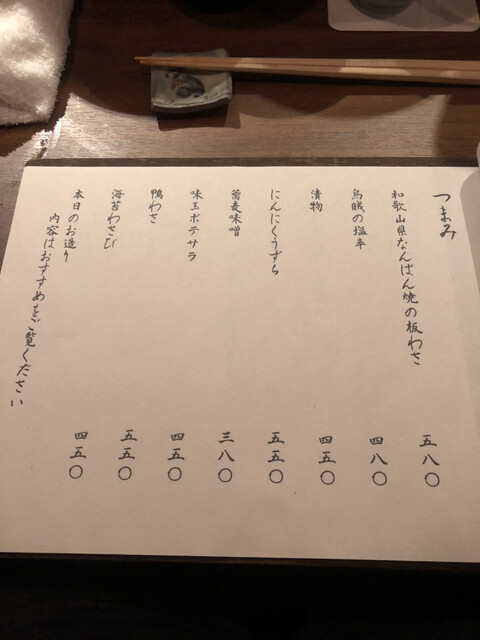 つまみ
和歌山県なんばん焼の板わさ 五八〇
烏賊の塩辛 四八〇
漬物 四五〇
にんにくうずら 五五〇
蕎麦味噌 三八〇
味玉ポテサラ 四五〇
鴨わさ 五五〇
海苔わさび 四五〇
本日のお造り
内容はおすすめをご覧ください